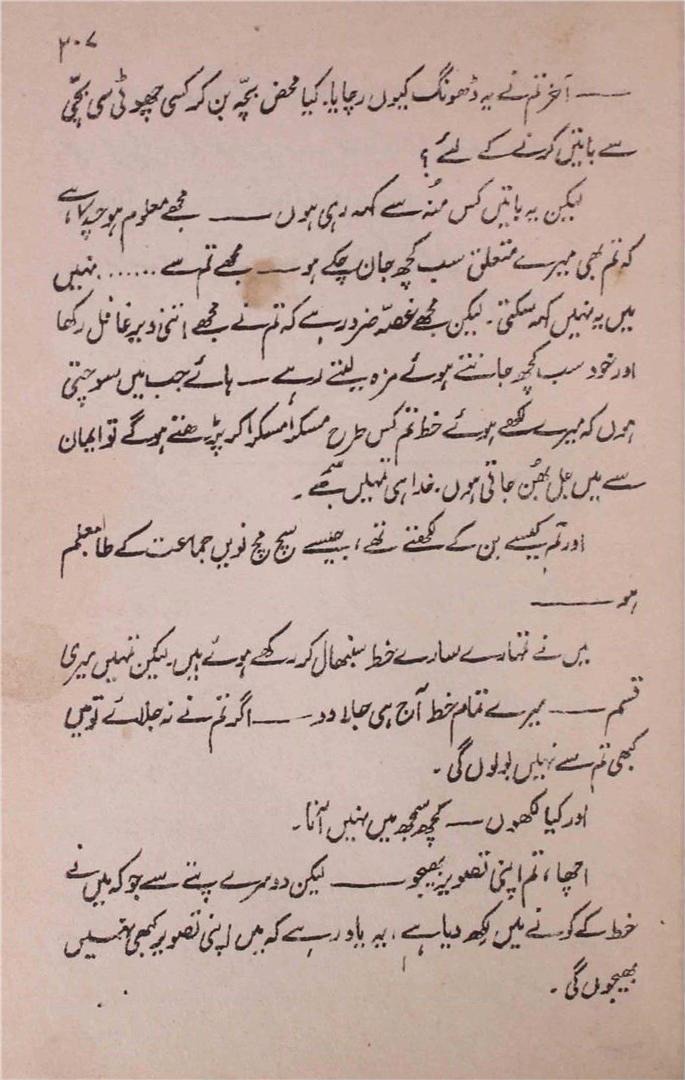 ۳۰۷
— آخر تم نے یہ ڈھونگ کیوں رچایا۔ کیا محض بچّہ بن کر کسی چھوٹی سی بچّی
سے باتیں کرنے کے لئے ؟
لیکن یہ باتیں کس مُنہ سے کہہ رہی ہوں — مجھے معلوم ہو چکا ہے
کہ تم بھی میرے متعلق سب کچھ جان چکے ہو — مجھے تم سے ...... نہیں
میں یہ نہیں کہہ سکتی۔ لیکن مجھے غصّہ ضرور ہے کہ تم نے مجھے اتنی دیر غافل رکھا
اور خود سب کچھ جانتے ہوئے مزہ لیتے رہے — ہائے جب میں سوچتی
ہوں کہ میرے لکھے ہوئے خط تم کس طرح مسکرا مسکرا کر پڑھتے ہوگے تو ایمان
سے میں جل بھُن جاتی ہوں۔ خدا ہی تمہیں سمجھے۔
اور تم کیسے بن کے لکھتے تھے، جیسے سچ مچ نویں جماعت کے طالبعلم
ہو —
میں نے تمہارے سارے خط سنبھال کر رکھے ہوئے ہیں۔ لیکن تمہیں میری
قسم — میرے تمام خط آج ہی جلا دو — اگر تم نے نہ جلائے تو میں
کبھی تم سے نہیں بولوں گی۔
اور کیا لکھوں — کچھ سمجھ میں نہیں آتا۔
اچھا، تم اپنی تصویر بھیجو — لیکن دوسرے پتے سے جو کہ میں نے
خط کے کونے میں لکھ دیا ہے، یہ یاد رہے کہ میں اپنی تصویر کبھی نہیں
بھیجوں گی۔